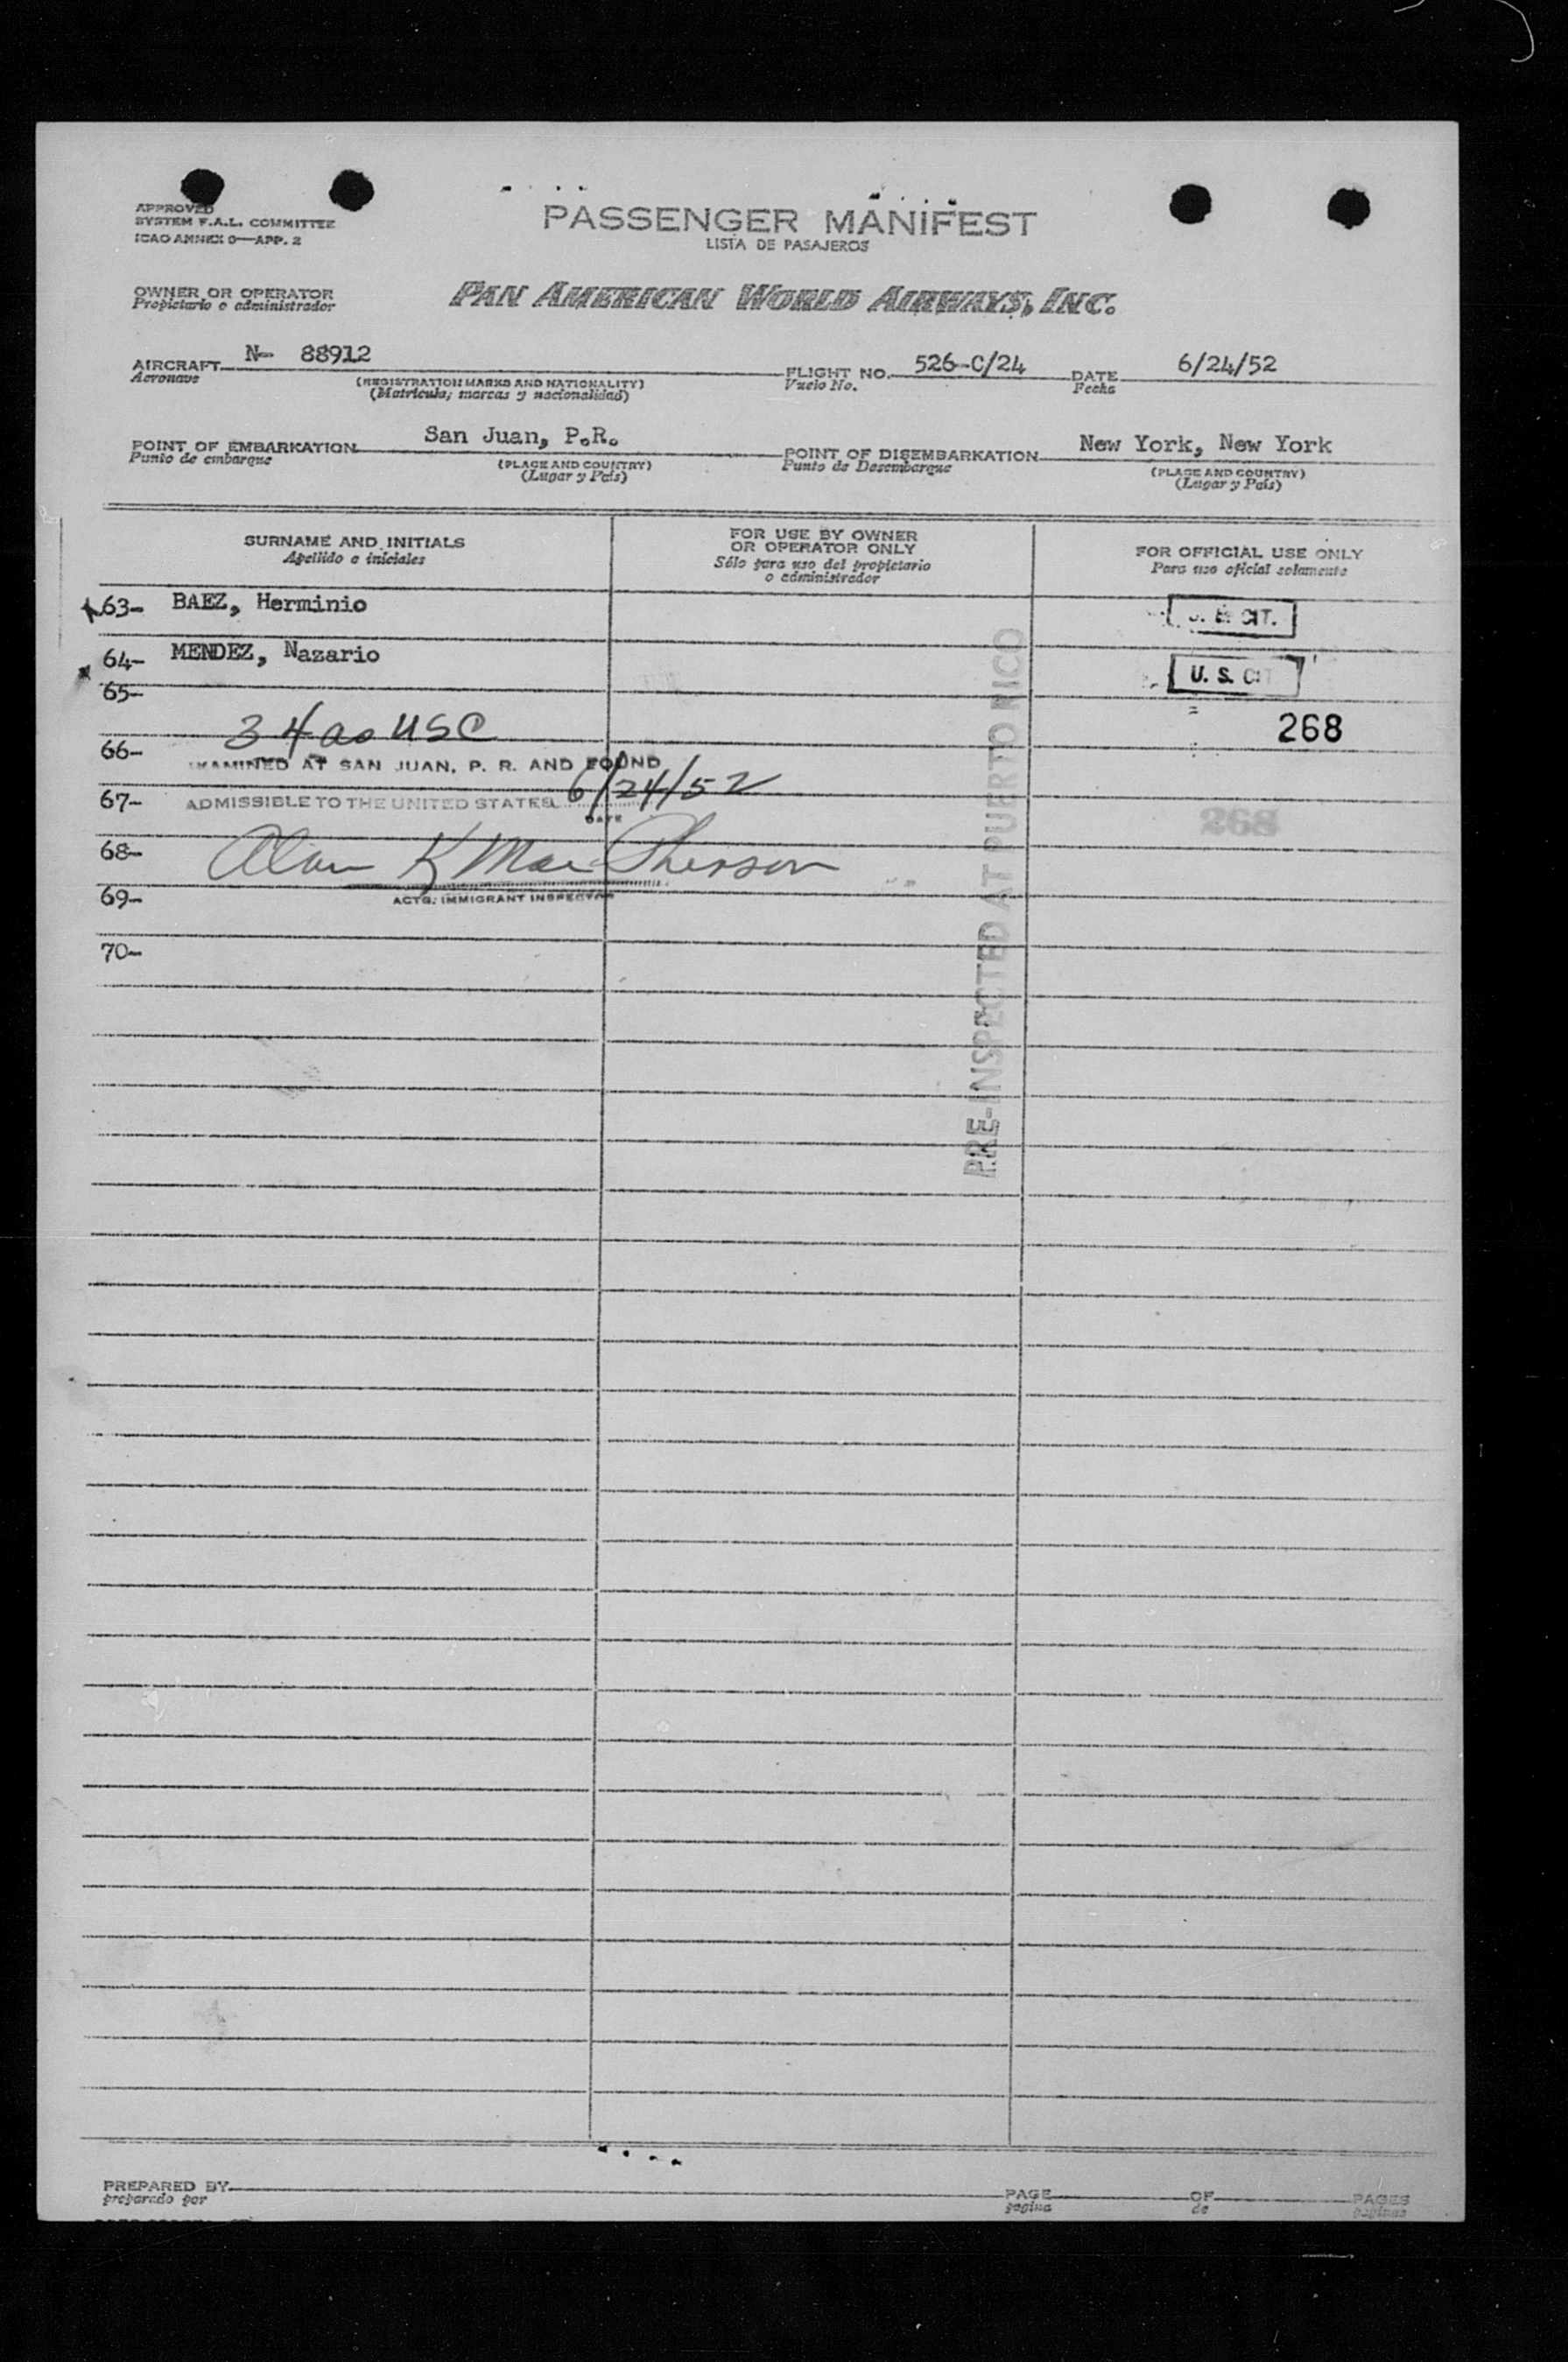 APPROVED
SYSTEM F.A.L. COMMITTEE
ICAO ANNEX 9—APP. 2
PASSENGER MANIFEST
LISTA DE PASAJEROS
OWNER OR OPERATOR
Propietario o administrador
PAN AMERICAN WORLD AIRWAYS, INC.
AIRCRAFT N- 88912
Aeronave
(REGISTRATION MARKS AND NATIONALITY)
(Matricula; marcas y nacionalidad)
FLIGHT NO. 526-C/24
Vuelo No.
DATE 6/24/52
Fecha
POINT OF EMBARKATION San Juan, P.R.
Punto de embarque
(PLACE AND COUNTRY)
(Lugar y País)
POINT OF DISEMBARKATION New York, New York
Punto de Desembarque
(PLACE AND COUNTRY)
(Lugar y País)
SURNAME AND INITIALS
Apellido e iniciales
FOR USE BY OWNER
OR OPERATOR ONLY
Sólo para uso del propietario
o administrador
FOR OFFICIAL USE ONLY
Para uso oficial solamente
63- BAEZ, Herminio
CIT.
64- MENDEZ, Nazario
U. S. CIT
65-
34 as USC
268
66-
EXAMINED AT SAN JUAN, P. R. AND FOUND
67- ADMISSIBLE TO THE UNITED STATES 6/24/52
DATE
268
68- Alan K MacPherson
69- ACTG. IMMIGRANT INSPECTOR
70-
PRE-INSPECTED AT PUERTO RICO
PREPARED BY
preparado por
PAGE OF PAGES
pagina de paginas